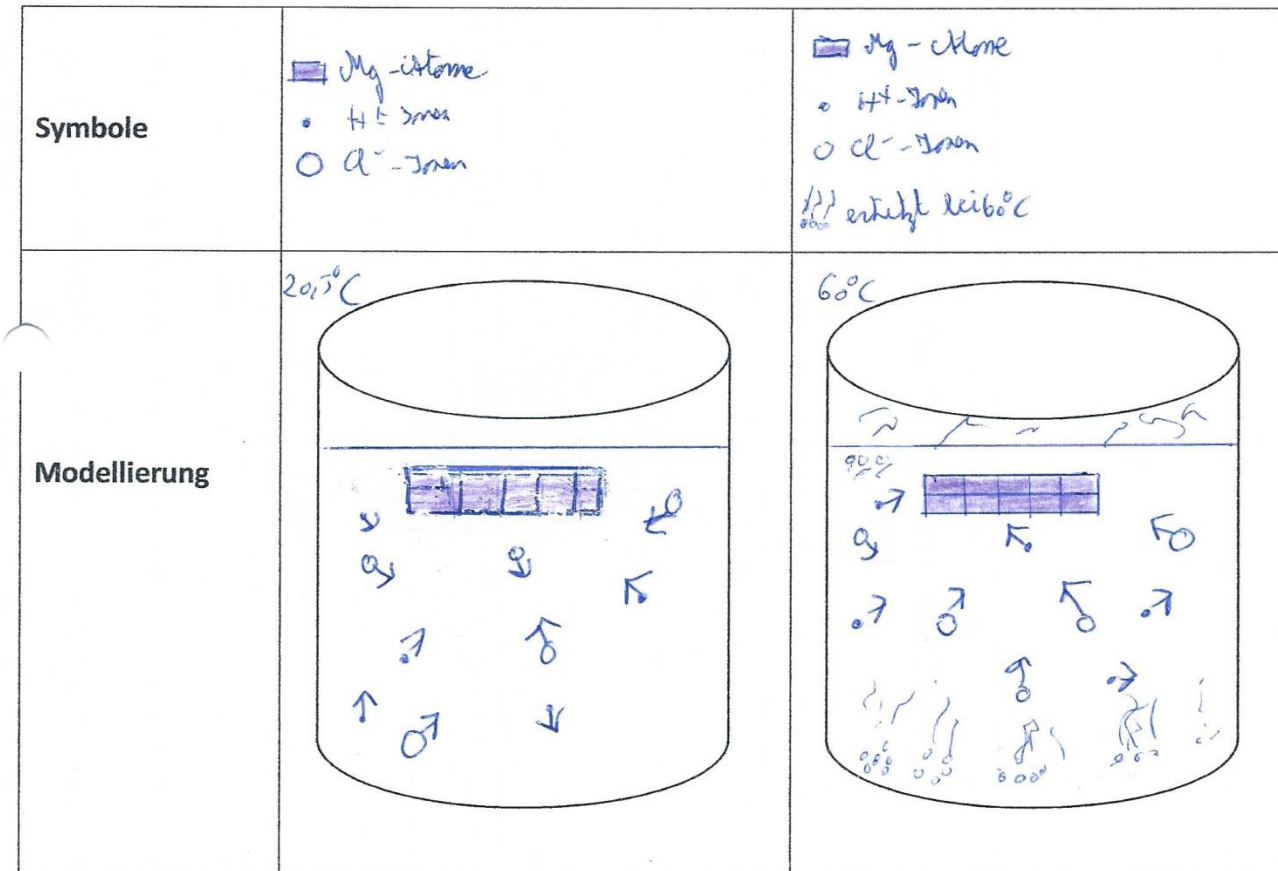 Symbole
Mg-Atome
H⁺-Ionen
Cl⁻-Ionen
Mg-Atome
H⁺-Ionen
Cl⁻-Ionen
erhitzt bei 60°C
Modellierung
20,5°C
60°C